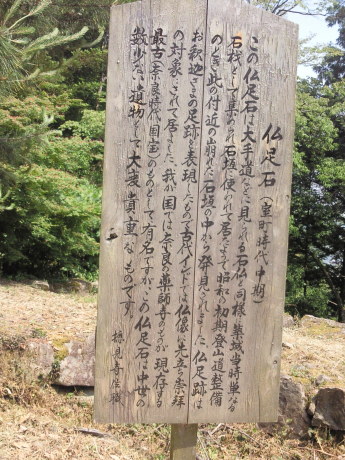 仏足石(室町時代中期)
この仏足石は大手道などに見られる石仏と同様に築城当時単なる
石材として集められ石垣に使われて居たようで昭和の初期登山道整備
のとき此の付近の崩れた石垣の中から発見されました。仏足跡は
お釈迦さまの足跡を表現したもので古代インドでは仏像に先立ち崇拝
の対象にされて居ました。我が国では奈良の薬師寺のものが現存する
最古(奈良時代国宝)のものとして有名ですが、この仏足石は中世の
数少ない遺物として大変貴重なものです。
摠見寺住職